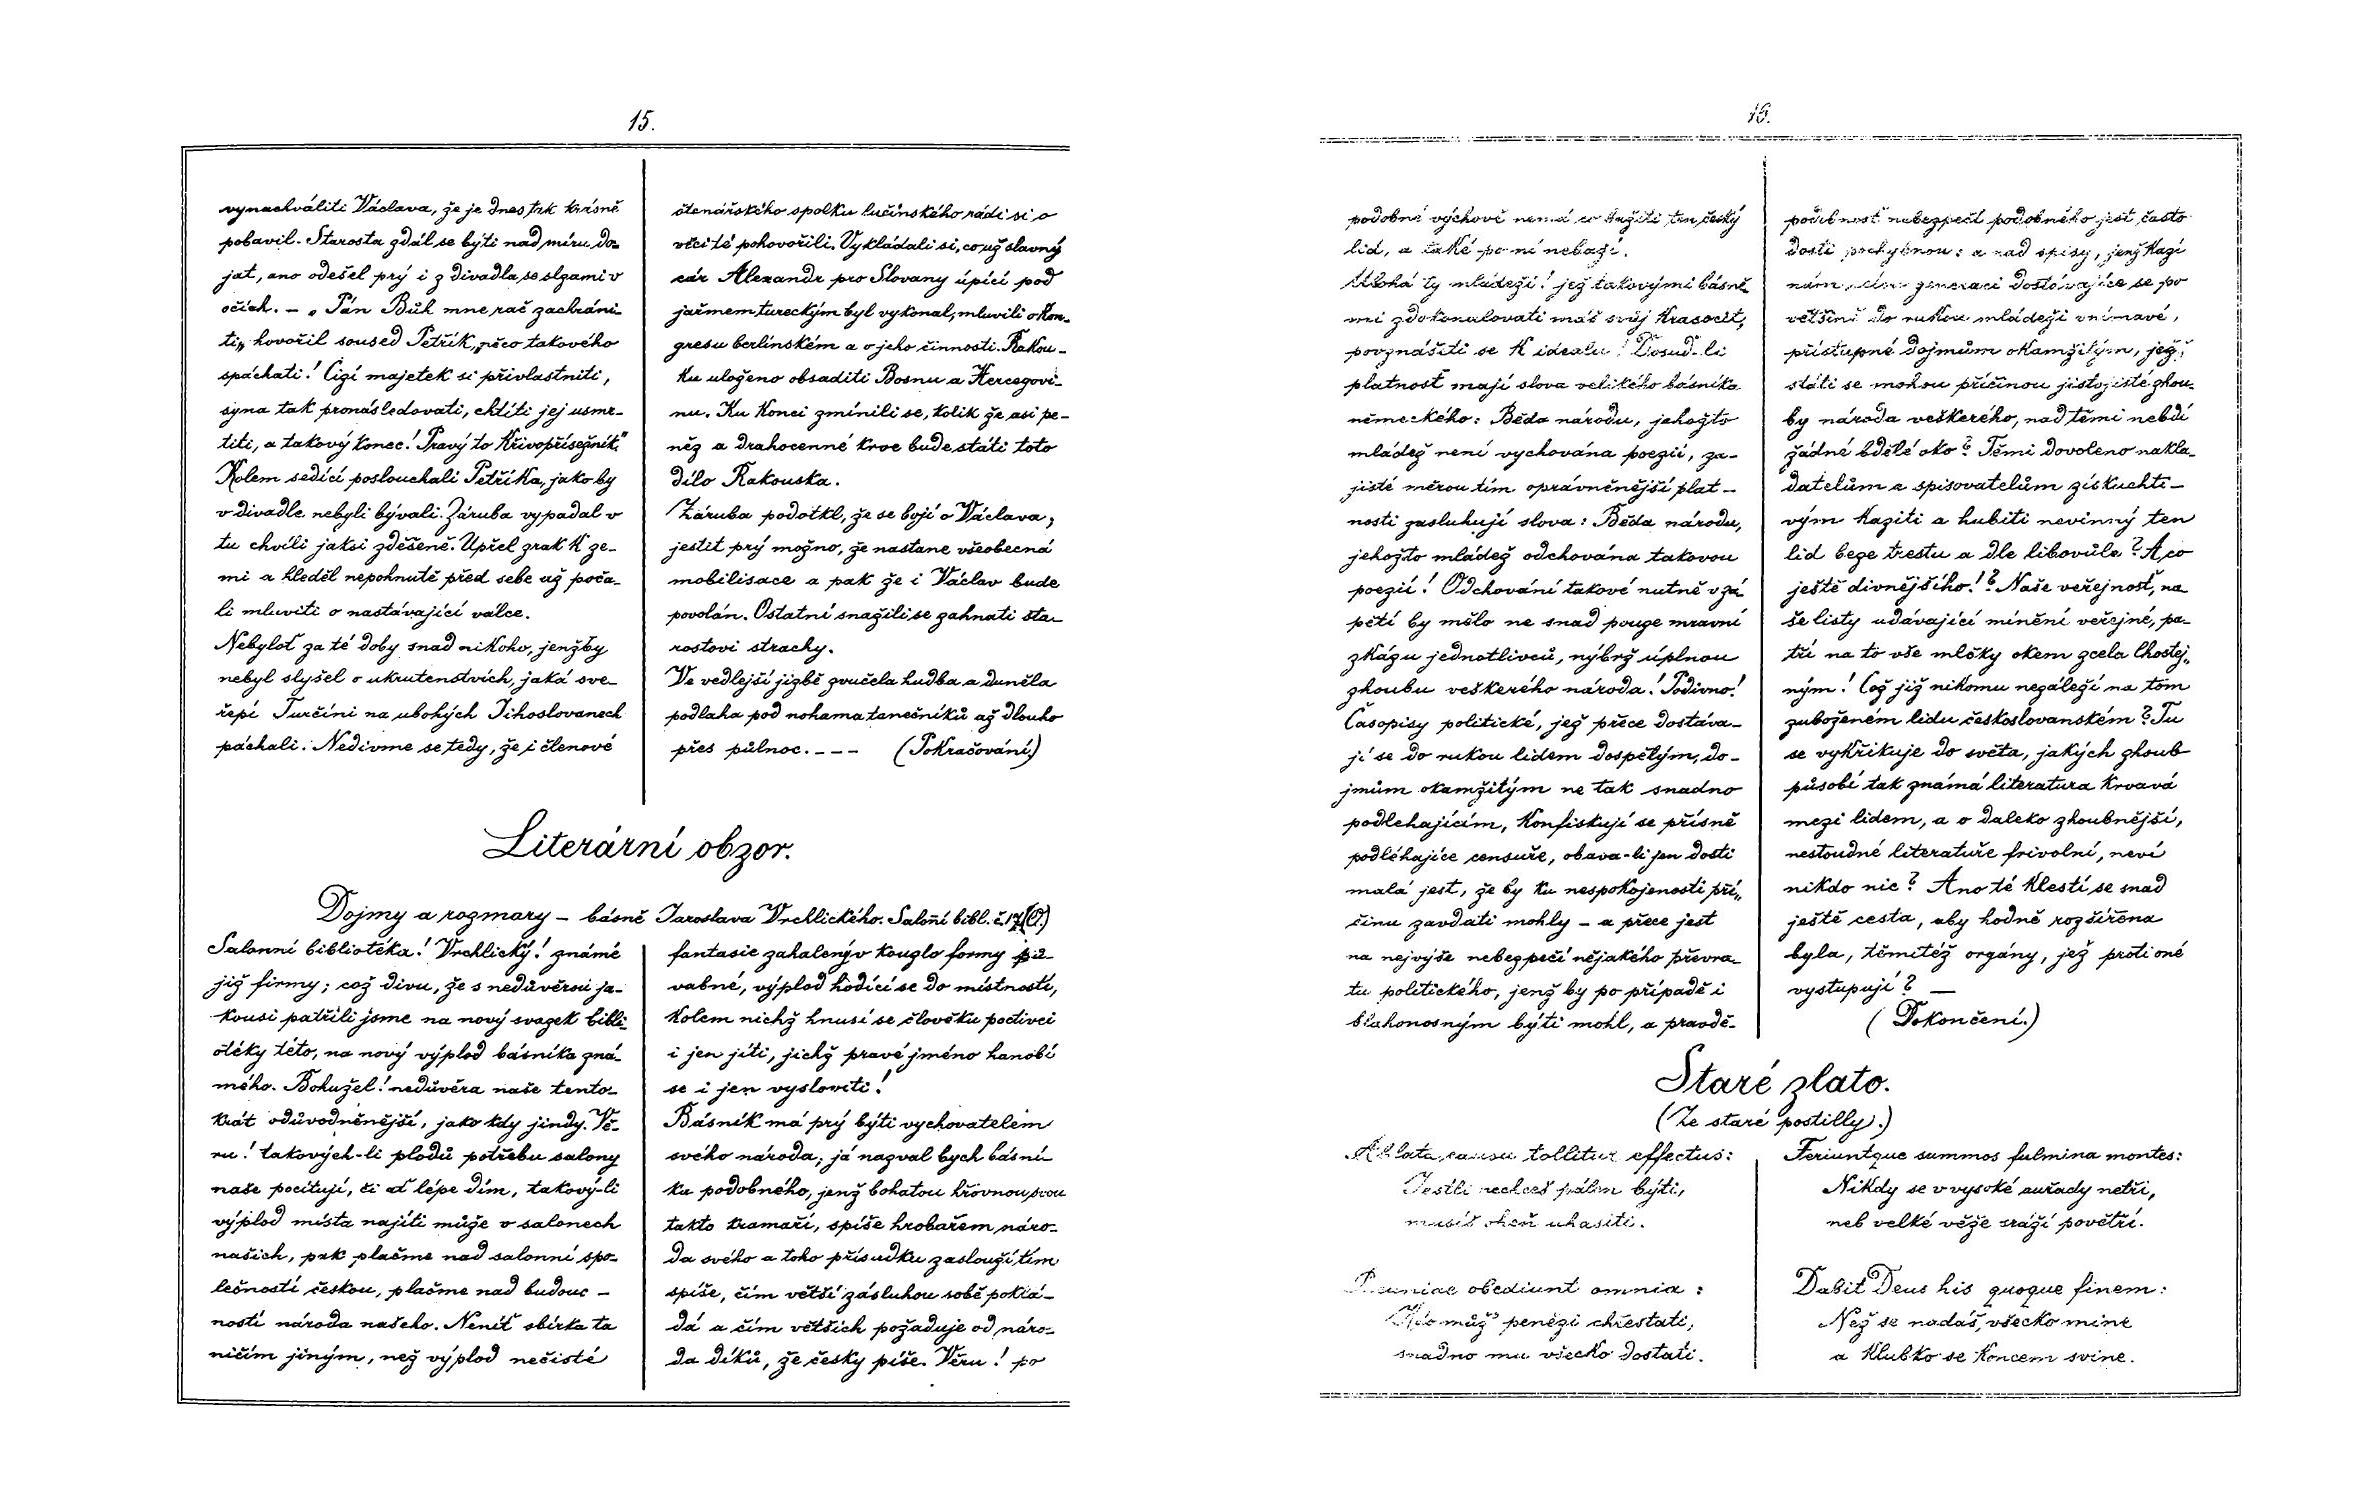 15.
vynachváliti Václava, že je dnes tak krásně
pobavil. Starosta zdál se býti nad míru do-
jat, ano odešel prý i z divadla se slzami v
očích. – „Pán Bůh mne rač zachráni-
ti„ hovořil soused Petřík, „něco takového
spáchati! Cizí majetek si přivlastniti,
syna tak pronásledovati, chtíti jej usmr-
titi, a takový konec! Pravý to Křivopřísežník."
Kolem sedící poslouchali Petříka, jako by
v divadle nebyli bývali. Záruba vypadal v
tu chvíli jaksi zděšeně. Upřel zrak k ze-
mi a hleděl nepohnutě před sebe až poča-
li mluviti o nastávající válce.
Nebyloť za té doby snad nikoho, jenžby
nebyl slyšel o ukrutenstvích, jaká sve-
řepí Turčíni na ubohých Jihoslovanech
páchali. Nedivme se tedy, že i členové
čtenářského spolku lučínského rádi si o
věci té pohovořili. Vykládali si, co už slavný
cár Alexandr pro Slovany úpící pod
jařmem tureckým byl vykonal, mluvili o kon-
gresu berlínském a o jeho činnosti. Rakou-
ku uloženo obsaditi Bosnu a Hercegovi-
nu. Ku konci zmínili se, kolik že asi pe-
něz a drahocenné krve bude státi toto
dílo Rakouska.
Záruba podotkl, že se bojí o Václava,
jestiť prý možno, že nastane všeobecná
mobilisace a pak že i Václav bude
povolán. Ostatní snažili se zahnati sta-
rostovi strachy.
Ve vedlejší jizbě zvučela hudba a duněla
podlaha pod nohama tanečníků až dlouho
přes půlnoc. – – – (Pokračování.)
Literární obzor.
Dojmy a rozmary – básně Jaroslava Vrchlického. Saloňí bibl. č. 17 (O.)
Salonní bibliotéka! Vrchlický! známé
již firmy; což divu, že s nedůvěrou ja-
kousi patřili jsme na nový svazek bibli-
otéky této, na nový výplod básníka zná-
mého. Bohužel! nedůvěra naše tento-
krát odůvodněnější, jako kdy jindy. Vě-
ru! takových-li plodů potřebu salony
naše pociťují, či ať lépe dím, takový-li
výplod místa najíti může v salonech
našich, pak plačme nad salonní spo-
lečností českou, plačme nad budouc-
ností národa našeho. Neníť sbírka ta
ničím jiným, než výplod nečisté
fantasie zahalený v kouzlo formy pů-
vabné, výplod hodící se do místností,
kolem nichž hnusí se člověku poctivci
i jen jíti, jichž pravé jméno hanobí
se i jen vysloviti!
Básník má prý býti vychovatelem
svého národa; já nazval bych básní-
ka podobného, jenž bohatou hřivnou svou
takto kramaří, spíše hrobařem náro-
da svého a toho přísudku zaslouží tím
spíše, čím větší zásluhou sobě poklá-
dá a čím větších požaduje od náro-
da díků, že česky píše. Věru! po
16.
podobné výchově nemá co toužiti ten český
lid, a také po ní nebaží.
Ubohá ty mládeži! jež takovými básně-
mi zdokonalovati máš svůj krasocit,
povznášeti se k idealu! Dosud-li
platnosť mají slova velikého básníka
německého: Běda národu, jehožto
mládež není vychována poezií, za-
jisté měrou tím oprávněnější plat-
nosti zasluhují slova: Běda národu,
jehožto mládež odchována takovou
poezií! Odchování takové nutně v zá
pětí by mělo ne snad pouze mravní
zkázu jednotlivců, nýbrž úplnou
zhoubu veškerého národa! Podivno!
Časopisy politické, jež přece dostáva-
jí se do rukou lidem dospělým, do-
jmům okamžitým ne tak snadno
podlehajícím, konfiskují se přísně
podléhajíce censuře, obava-li jen dosti
malá jest, že by ku nespokojenosti pří„
činu zavdati mohly – a přece jest
na nejvýše nebezpečí nějakého převra-
tu politického, jenž by po případě i
blahonosným býti mohl, a pravdě-
podobnosť nebezpečí podobného jest často
dosti pochybnou: a nad spisy, jenž kazí
nám generaci dostávajíce se po
většině do rukou mládeži vnímavé,
přístupné dojmům okamžitým, jež
státi se mohou příčinou jistojisté zhou-
by národa veškerého, nad těmi nebdí
žádné bdělé oko? Těmi dovoleno nakla-
datelům a spisovatelům ziskuchti-
vým kaziti a hubiti nevinný ten
lid beze trestu a dle libovůle? A co
ještě divnějšího!? Naše veřejnosť, na
še listy udávající mínění veřejné, pa-
tří na to vše mlčky okem zcela lhostej„
ným! Což již nikomu nezáleží na tom
zuboženém lidu českoslovanském? Tu
se vykřikuje do světa, jakých zhoub
působí tak známá literatura krvavá
mezi lidem, a o daleko zhoubnější,
nestoudné literatuře frivolní, neví
nikdo nic? Ano té klestí se snad
ještě cesta, aby hodně rozšířena
byla, těmitéž orgány, jež proti oné
vystupují? —
(Dokončení.)
Staré zlato.
(Ze staré postilly.)
Ablata causa tollitur effectus:
Jestli nechceš pálen býti,
musíš oheň uhasiti.
Pecuniae obediunt omnia:
Kdo můž' penězi chřestati,
snadno mu všecko dostati.
Feriuntque summos fulmina montes:
Nikdy se v vysoké auřady netři,
neb velké věže sráží povětří.
Dabit Deus his quoque finem:
Než se nadáš, všecko mine
a klubko se koncem svine.